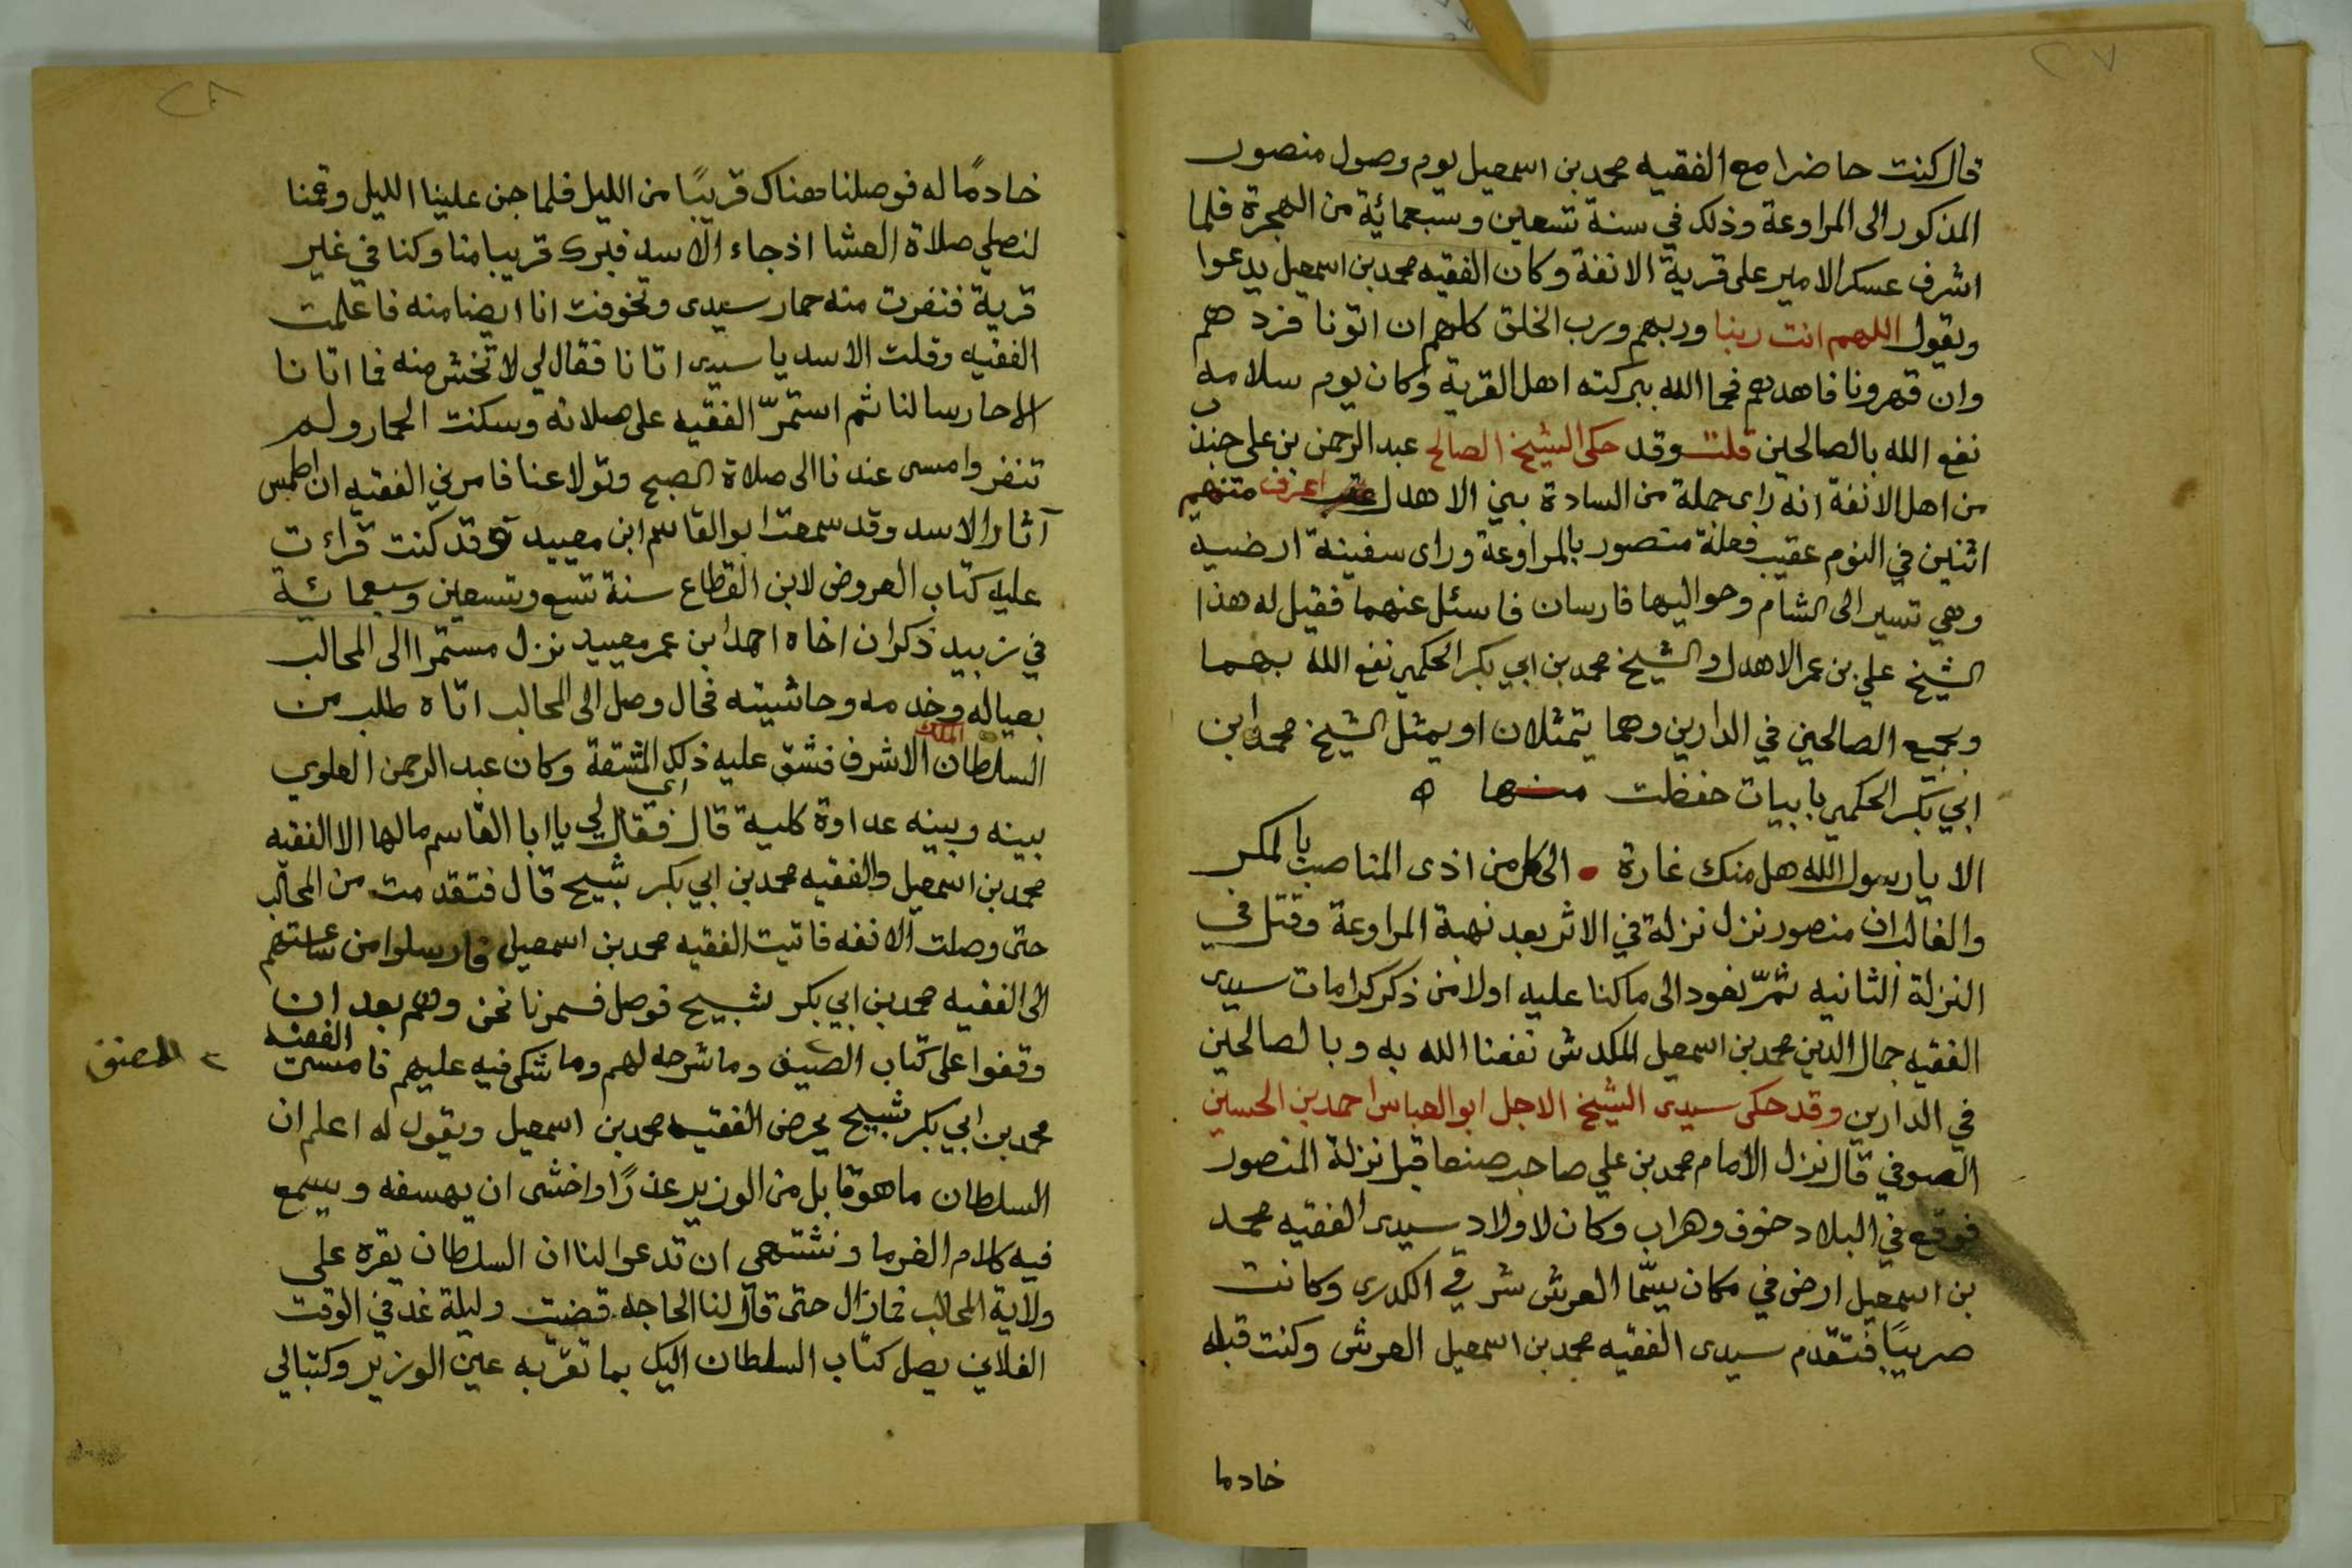 ٢٧
قال كنت حاضرا مع الفقيه محمد بن اسمعيل يوم وصول منصور
المذكور الى المراوعة وذلك في سنة تسعين وسبعمائة من الهجرة فلما
اشرف عسكر الامير على قرية الانفة وكان الفقيه محمد بن اسمعيل يدعوا
ويقول اللهم انت ربنا وربهم ورب الخلق كلهم ان اتونا فردهم
وان قهرونا فاهدهم فحما الله ببركته اهل القرية وكان يوم سلامه
نفع الله بالصالحين قلت وقد حكى الشيخ الصالح عبد الرحمن بن على
من اهل الانفة انه راى جملة من السادة بني الاهدل اعرف منهم
اثنين في النوم عقيب فعلة منصور بالمراوعة وراى سفينة ارضيه
وهي تسير الى الشام وحواليها فارسان فاسئل عنهما فقيل له هذا
الشيخ علي بن عمر الاهدل والشيخ محمد بن ابي بكر الحكمي نفع الله بهما
وبجميع الصالحين في الدارين وهما يتمثلان او يمثل الشيخ محمد ابن
ابي بكر الحكمي بابيات حفظت منها ه
الا يا رسول الله هل منك غارة • الى كل من اذى المناصب بالمكر
والغالب ان منصور نزل نزلة في الاثر بعد نهبة المراوعة وقتل في
النزلة الثانيه ثمّ نعود الى ما كنا عليه اولا من ذكر كرامات سيدى
الفقيه جمال الدين محمد بن اسمعيل المكدش نفعنا الله به وبالصالحين
في الدارين وقد حكى سيدى الشيخ الاجل ابو العباس احمد بن الحسين
الصوفي قال نزل الامام محمد بن علي صاحب صنعا قبل نزلة المنصور
فوقع في البلاد خوف وهراب وكان لاولاد سيدى الفقيه محمد
بن اسمعيل ارض في مكان يسّما العرش شرقي الكدرى وكانت
صريبًا فتقدّم سيدى الفقيه محمد بن اسمعيل العرش وكنت قبله
خادما
٢٨
خادمًا له فوصلنا هناك قريبًا من الليل فلما جن علينا الليل وقمنا
لنصلي صلاة العشا اذ جاء الاسد فبرك قريبا منا وكنا في غير
قرية فنفرت منه حمار سيدى وتخوفت انا ايضا منه فاعلمت
الفقيه وقلت الاسد يا سيدى اتانا فقال لي لا تخش منه فما اتانا
الا حارسا لنا ثم استمرّ الفقيه على صلاته وسكنت الحمار ولم
تنفر وامسى عندنا الى صلاة الصبح وتولا عنا فامرني الفقيه ان اطمس
آثار الاسد وقد سمعت ابو القاسم ابن معيبد وقد كنت قرات
عليه كتاب العروض لابن القطاع سنة تسع وتسعين وسبعمائة
في زبيد ذكر ان اخاه احمد ابن عمر معيبد نزل مستمرا الى المحالب
بعياله وخدمه وحاشيته فحال وصل الى المحالب اتاه طلب من
السلطان الملك الاشرف فشق عليه ذلك اى المشقة وكان عبد الرحمن العلوي
بينه وبينه عداوة كلية قال فقال لي يا ابا القاسم ما لها الا الفقيه
محمد بن اسمعيل والفقيه محمد بن ابي بكر شبيح قال فتقدمت من المحالب
حتى وصلت الانفه فاتيت الفقيه محمد بن اسمعيل فارسلوا من ساعتهم
الى الفقيه محمد بن ابي بكر شبيح فوصل فسمرنا نحن وهم بعد ان
وقفوا على كتاب الصنيف وما شرحه لهم وما شكى فيه عليهم فامسى الفقيه
المصنف
محمد بن ابي بكر شبيح يحرض الفقيه محمد بن اسمعيل ويقول له اعلم ان
السلطان ما هو قابل من الوزير عذرًا واخشى ان يهسفه ويسمع
فيه كلام الغرما ونشتهي ان تدعوا لنا ان السلطان يقره على
ولاية المحالب فمازال حتى قال لنا الحاجه قضيت وليلة غد في الوقت
الفلاني يصل كتاب السلطان اليك بما تقرّ به عين الوزير وكتبالي